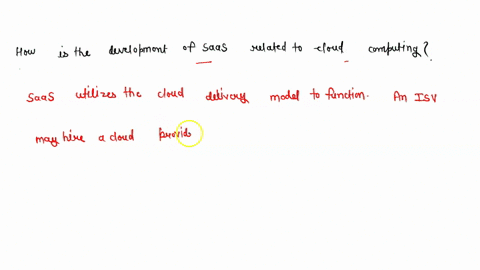 How is the development of SaaS related to cloud computing?
SaaS utilizes the cloud delivery model to function. An ISV
may hire a cloud provide